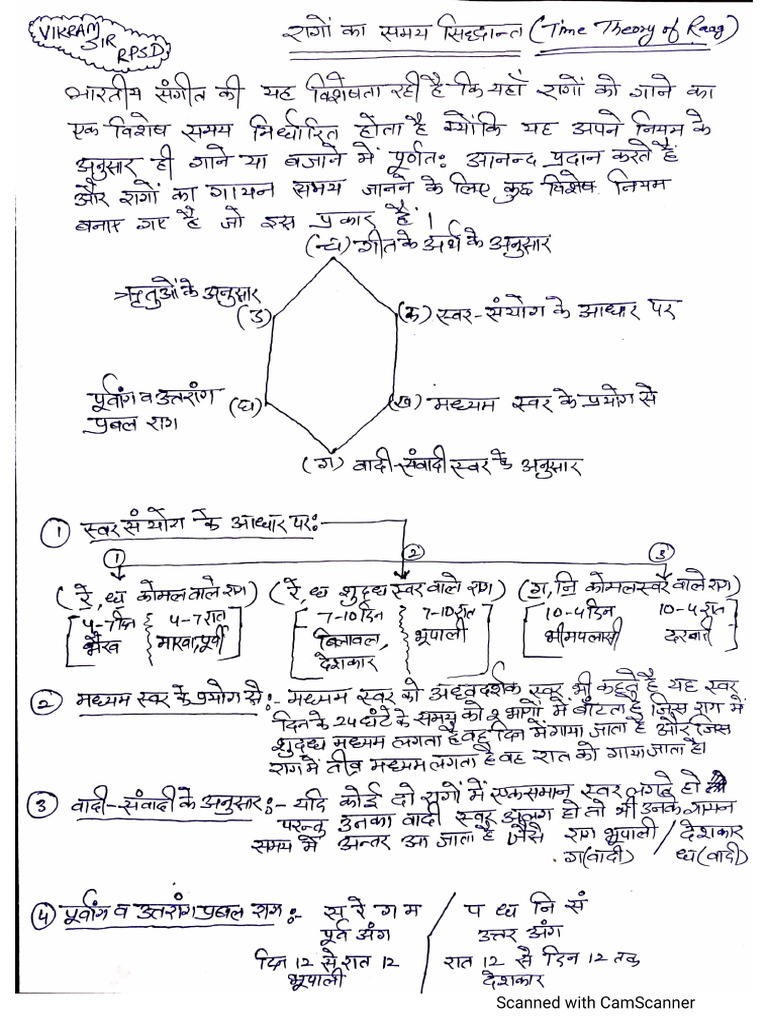 VIKRAM
SIR
RPSD
रागों का समय सिद्धान्त (Time Theory of Raag)
भारतीय संगीत की यह विशेषता रही है कि यहाँ रागों को गाने का
एक विशेष समय निर्धारित होता है क्योंकि यह अपने नियम के
अनुसार ही गाने या बजाने में पूर्णतः आनन्द प्रदान करते हैं
और रागों का गायन समय जानने के लिए कुछ विशेष नियम
बनाए गए है जो इस प्रकार हैं।
(च) गीत के अर्थ के अनुसार
ऋतुओं के अनुसार
(ड)
(क) स्वर-संयोग के आधार पर
पूर्वांग व उत्तरांग
प्रबल राग
(घ)
(ख) मध्यम स्वर के प्रयोग से
(ग) वादी-संवादी स्वर के अनुसार
① स्वर संयोग के आधार पर:-
① ② ③
(रे, ध कोमल वाले राग) (रे, ध शुद्ध स्वर वाले राग) (ग, नि कोमल स्वर वाले राग)
4-7 दिन 4-7 रात 7-10 दिन 7-10 रात 10-4 दिन 10-4 रात
भैरव मारवा, पूर्वी बिलावल, भूपाली भीमपलासी दरबारी
देशकार
② मध्यम स्वर के प्रयोग से:- मध्यम स्वर को अध्वदर्शक स्वर भी कहते है यह स्वर
दिन के 24 घंटे के समय को 2 भागों में बाँटता है जिस राग में
शुद्ध मध्यम लगता है वह दिन में गाया जाता है और जिस
राग में तीव्र मध्यम लगता है वह रात को गाया जाता है।
③ वादी-संवादी के अनुसार:- यदि कोई दो रागों में एक समान स्वर लगते हो
परन्तु उनका वादी स्वर अलग हो तो भी उनके गायन
समय में अन्तर आ जाता है जैसे राग भूपाली / देशकार
ग(वादी) ध(वादी)
④ पूर्वांग व उत्तरांग प्रबल राग:- स रे ग म / प ध नि सं
पूर्व अंग उत्तर अंग
दिन 12 से रात 12 रात 12 से दिन 12 तक
भूपाली देशकार
Scanned with CamScanner